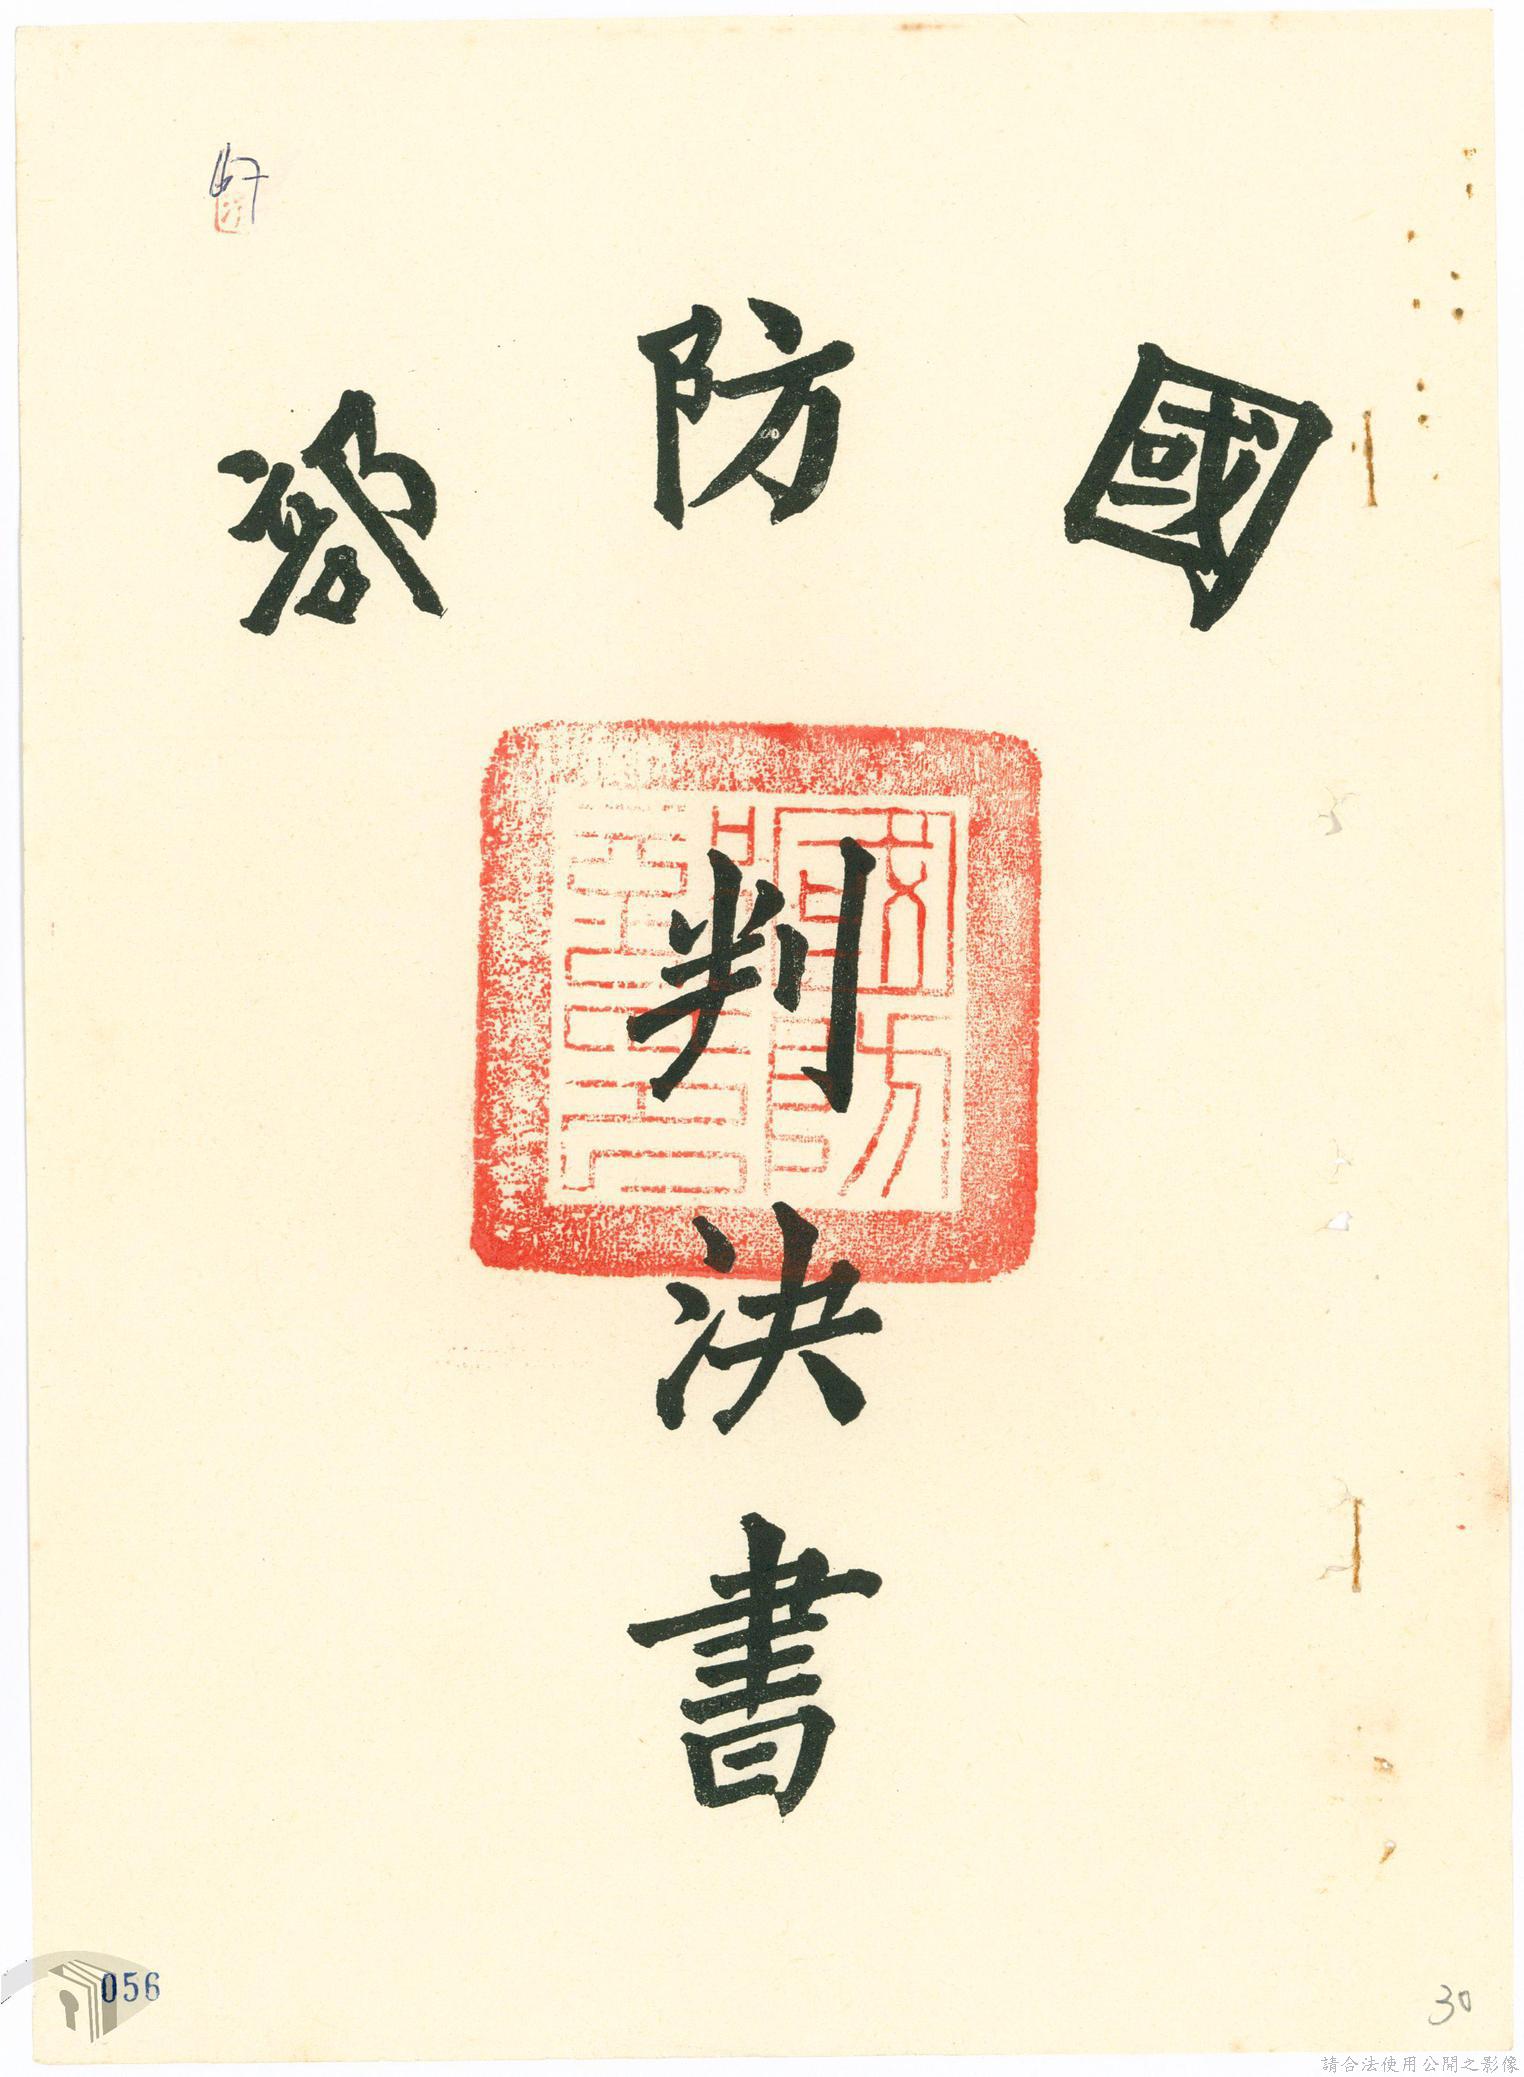 67
國防部
判決書
056
30
請合法使用公開之影像